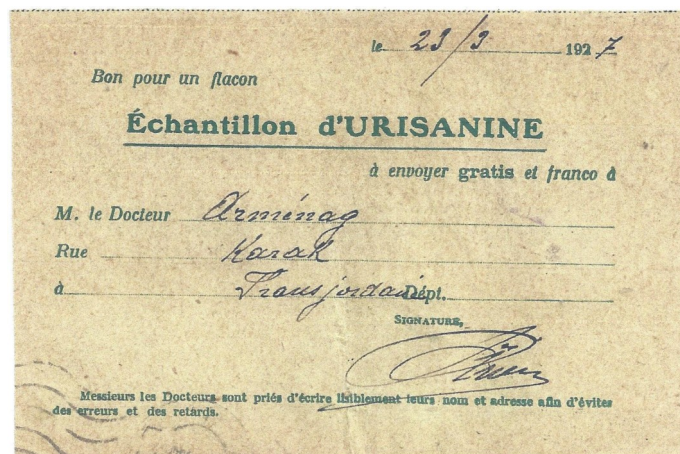 le 23/3 1927
Bon pour un flacon
Échantillon d'URISANINE
à envoyer gratis et franco à
M. le Docteur Arménag
Rue Karak
à Transjordanie Dépt.
SIGNATURE,
Messieurs les Docteurs sont priés d'écrire lisiblement leurs nom et adresse afin d'évites
des erreurs et des retards.